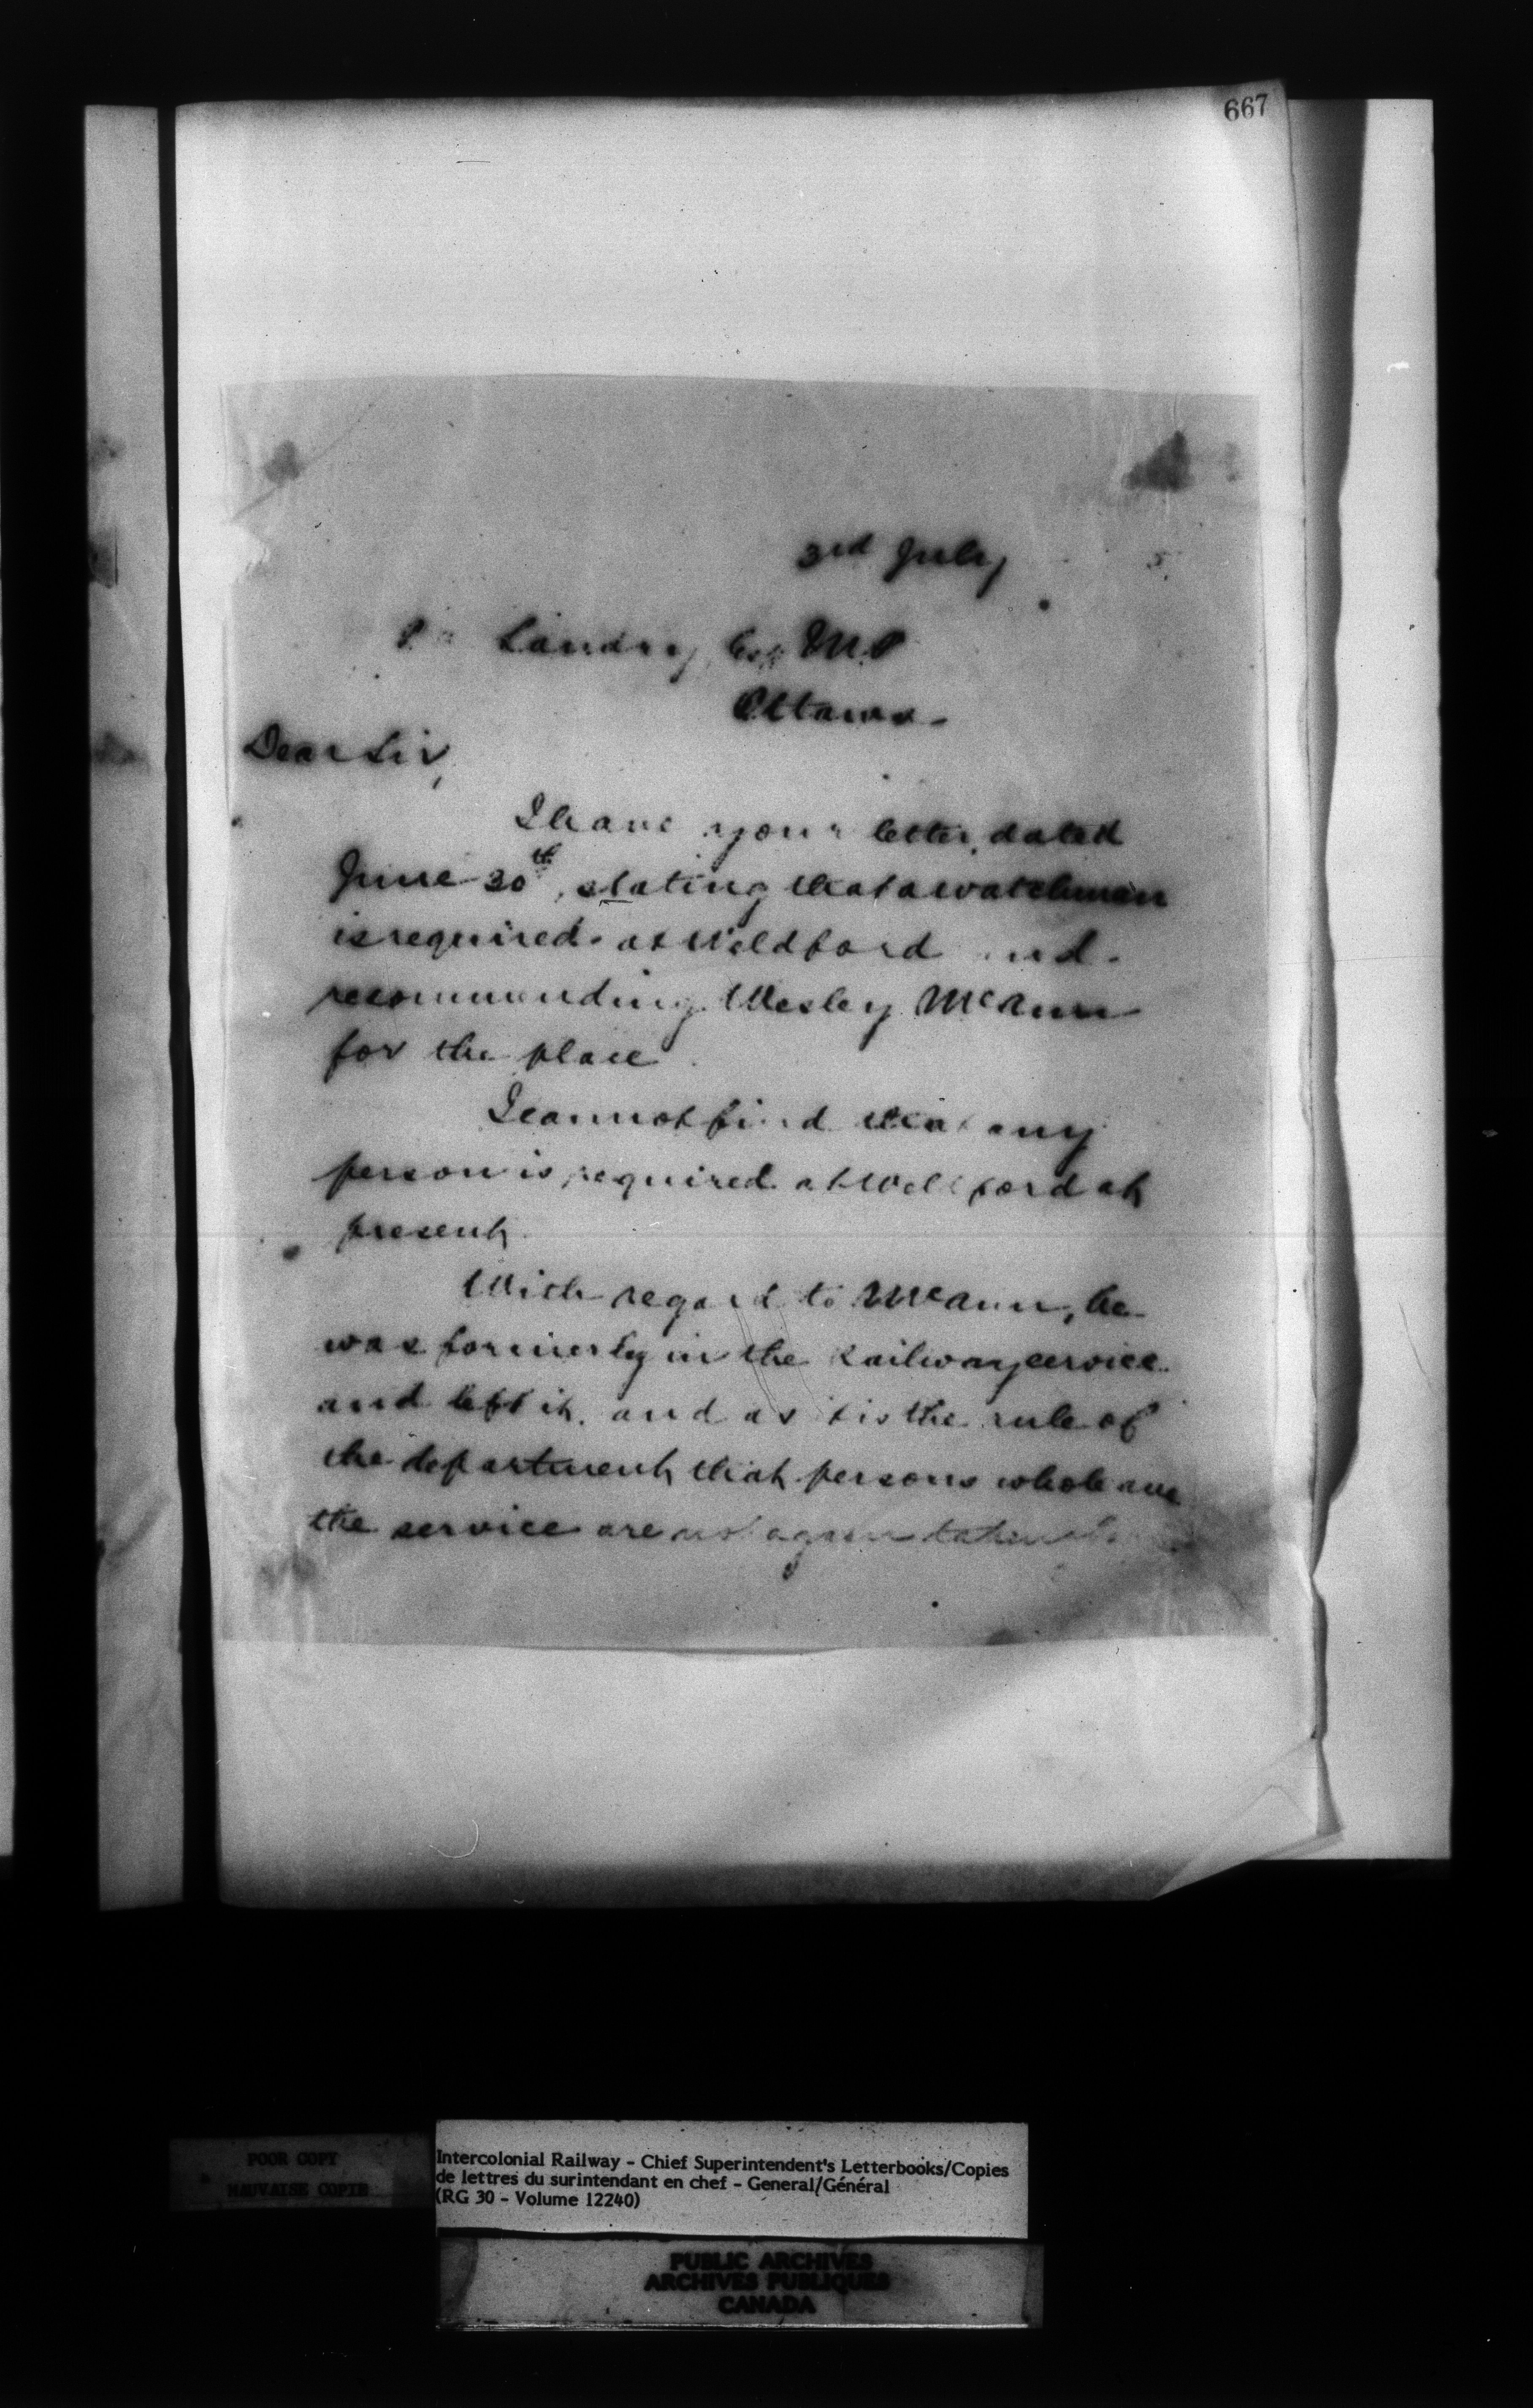 667
3rd July 5
P. Landry, Esq. M.P
Ottawa
Dear Sir,
I have your letter, dated
June 30th, stating that a watchman
is required at Weldford and
recommending Wesley McAnn
for the place.
I cannot find that any
person is required at Weldford at
present.
With regard to McAnn, he
was formerly in the Railway service
and left it, and as it is the rule of
the department that persons who leave
the service are not again taken
POOR COPY
MAUVAISE COPIE
Intercolonial Railway - Chief Superintendent's Letterbooks/Copies
de lettres du surintendant en chef - General/Général
(RG 30 - Volume 12240)
PUBLIC ARCHIVES
ARCHIVES PUBLIQUES
CANADA